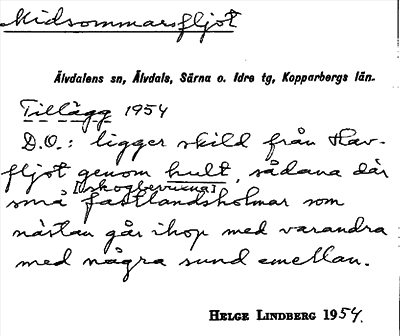 Midsommarsfljot
Älvdalens sn, Älvdals, Särna o. Idre tg, Kopparbergs län.
Tillägg 1954
D.O.: ligger skild från Hav-
fljot genom hult, sådana där
[skogbevuxna]
små fastlandsholmar som
nästan går ihop med varandra
med några sund emellan.
HELGE LINDBERG 1954.